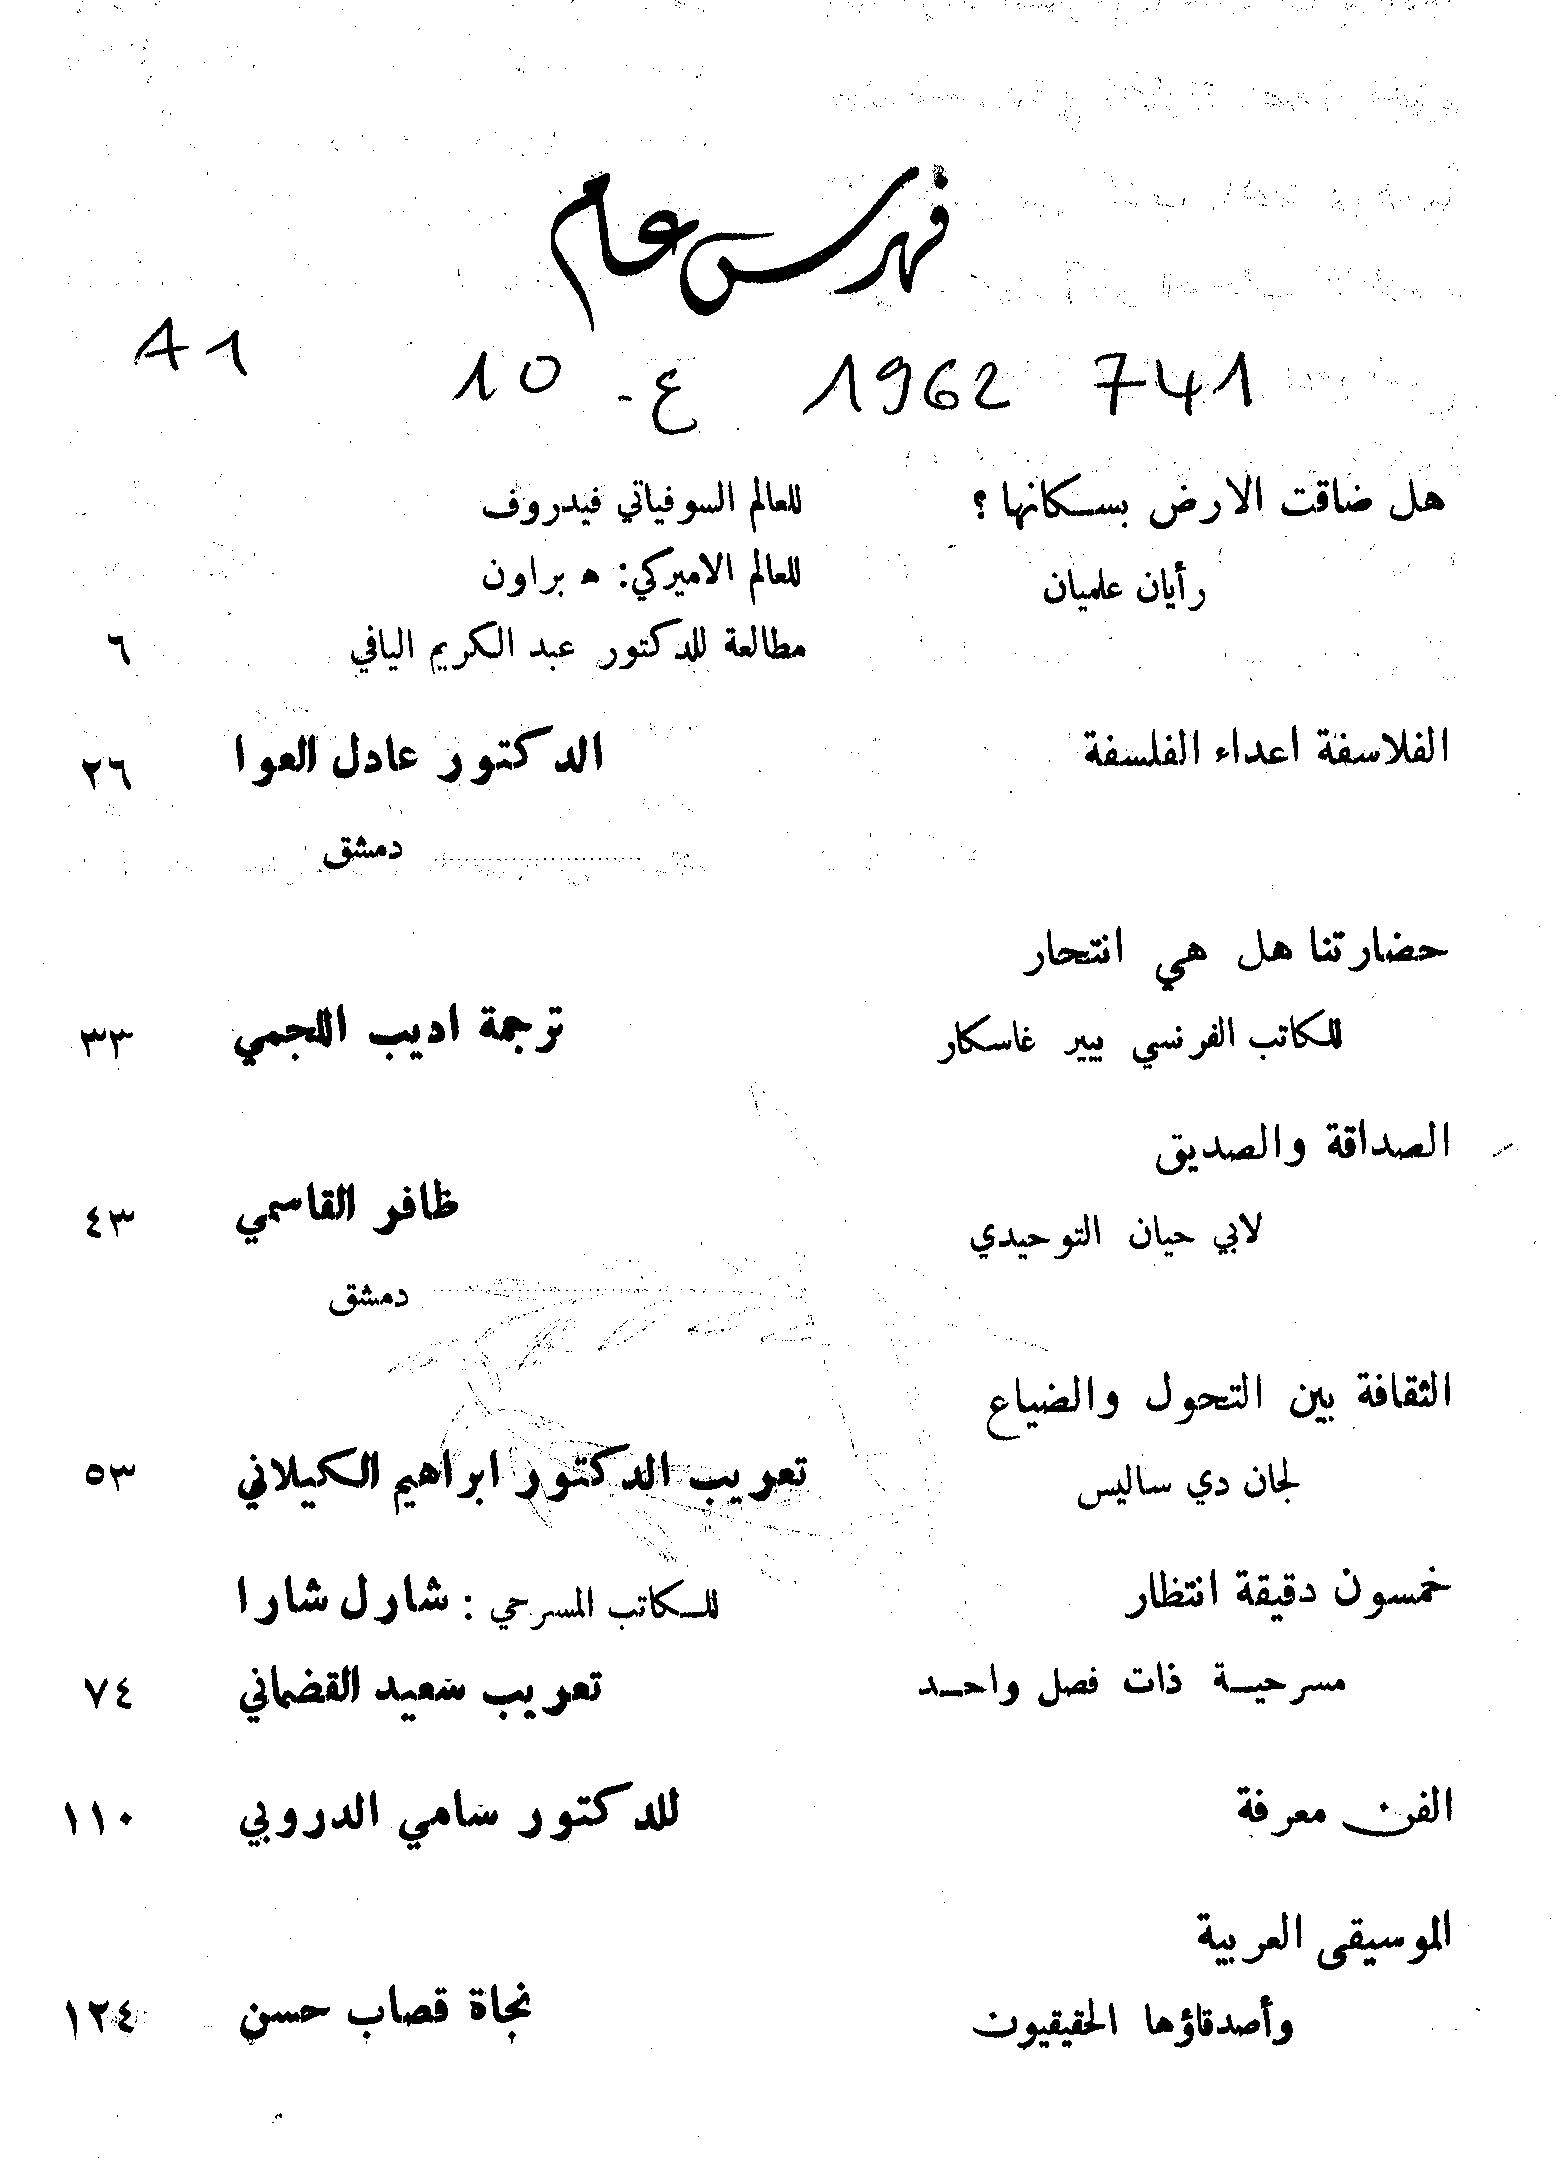 فهرس عام
741 1962 ع - 10 A1
هل ضاقت الارض بسكانها ؟ للعالم السوفياتي فيدروف
رأيان علميان للعالم الاميركي : ه براون
مطالعة للدكتور عبد الكريم اليافي ٦
الفلاسفة اعداء الفلسفة الدكتور عادل العوا ٢٦
دمشق
حضارتنا هل هي انتحار
للكاتب الفرنسي بيير غاسكار ترجمة اديب اللجمي ٣٣
الصداقة والصديق
لابي حيان التوحيدي ظافر القاسمي ٤٣
دمشق
الثقافة بين التحول والضياع
لجان دي ساليس تعريب الدكتور ابراهيم الكيلاني ٥٣
خمسون دقيقة انتظار للكاتب المسرحي : شارل شارا
مسرحية ذات فصل واحد تعريب سعيد القضماني ٧٤
الفن معرفة للدكتور سامي الدروبي ١١٠
الموسيقى العربية
وأصدقاؤها الحقيقيون نجاة قصاب حسن ١٢٤